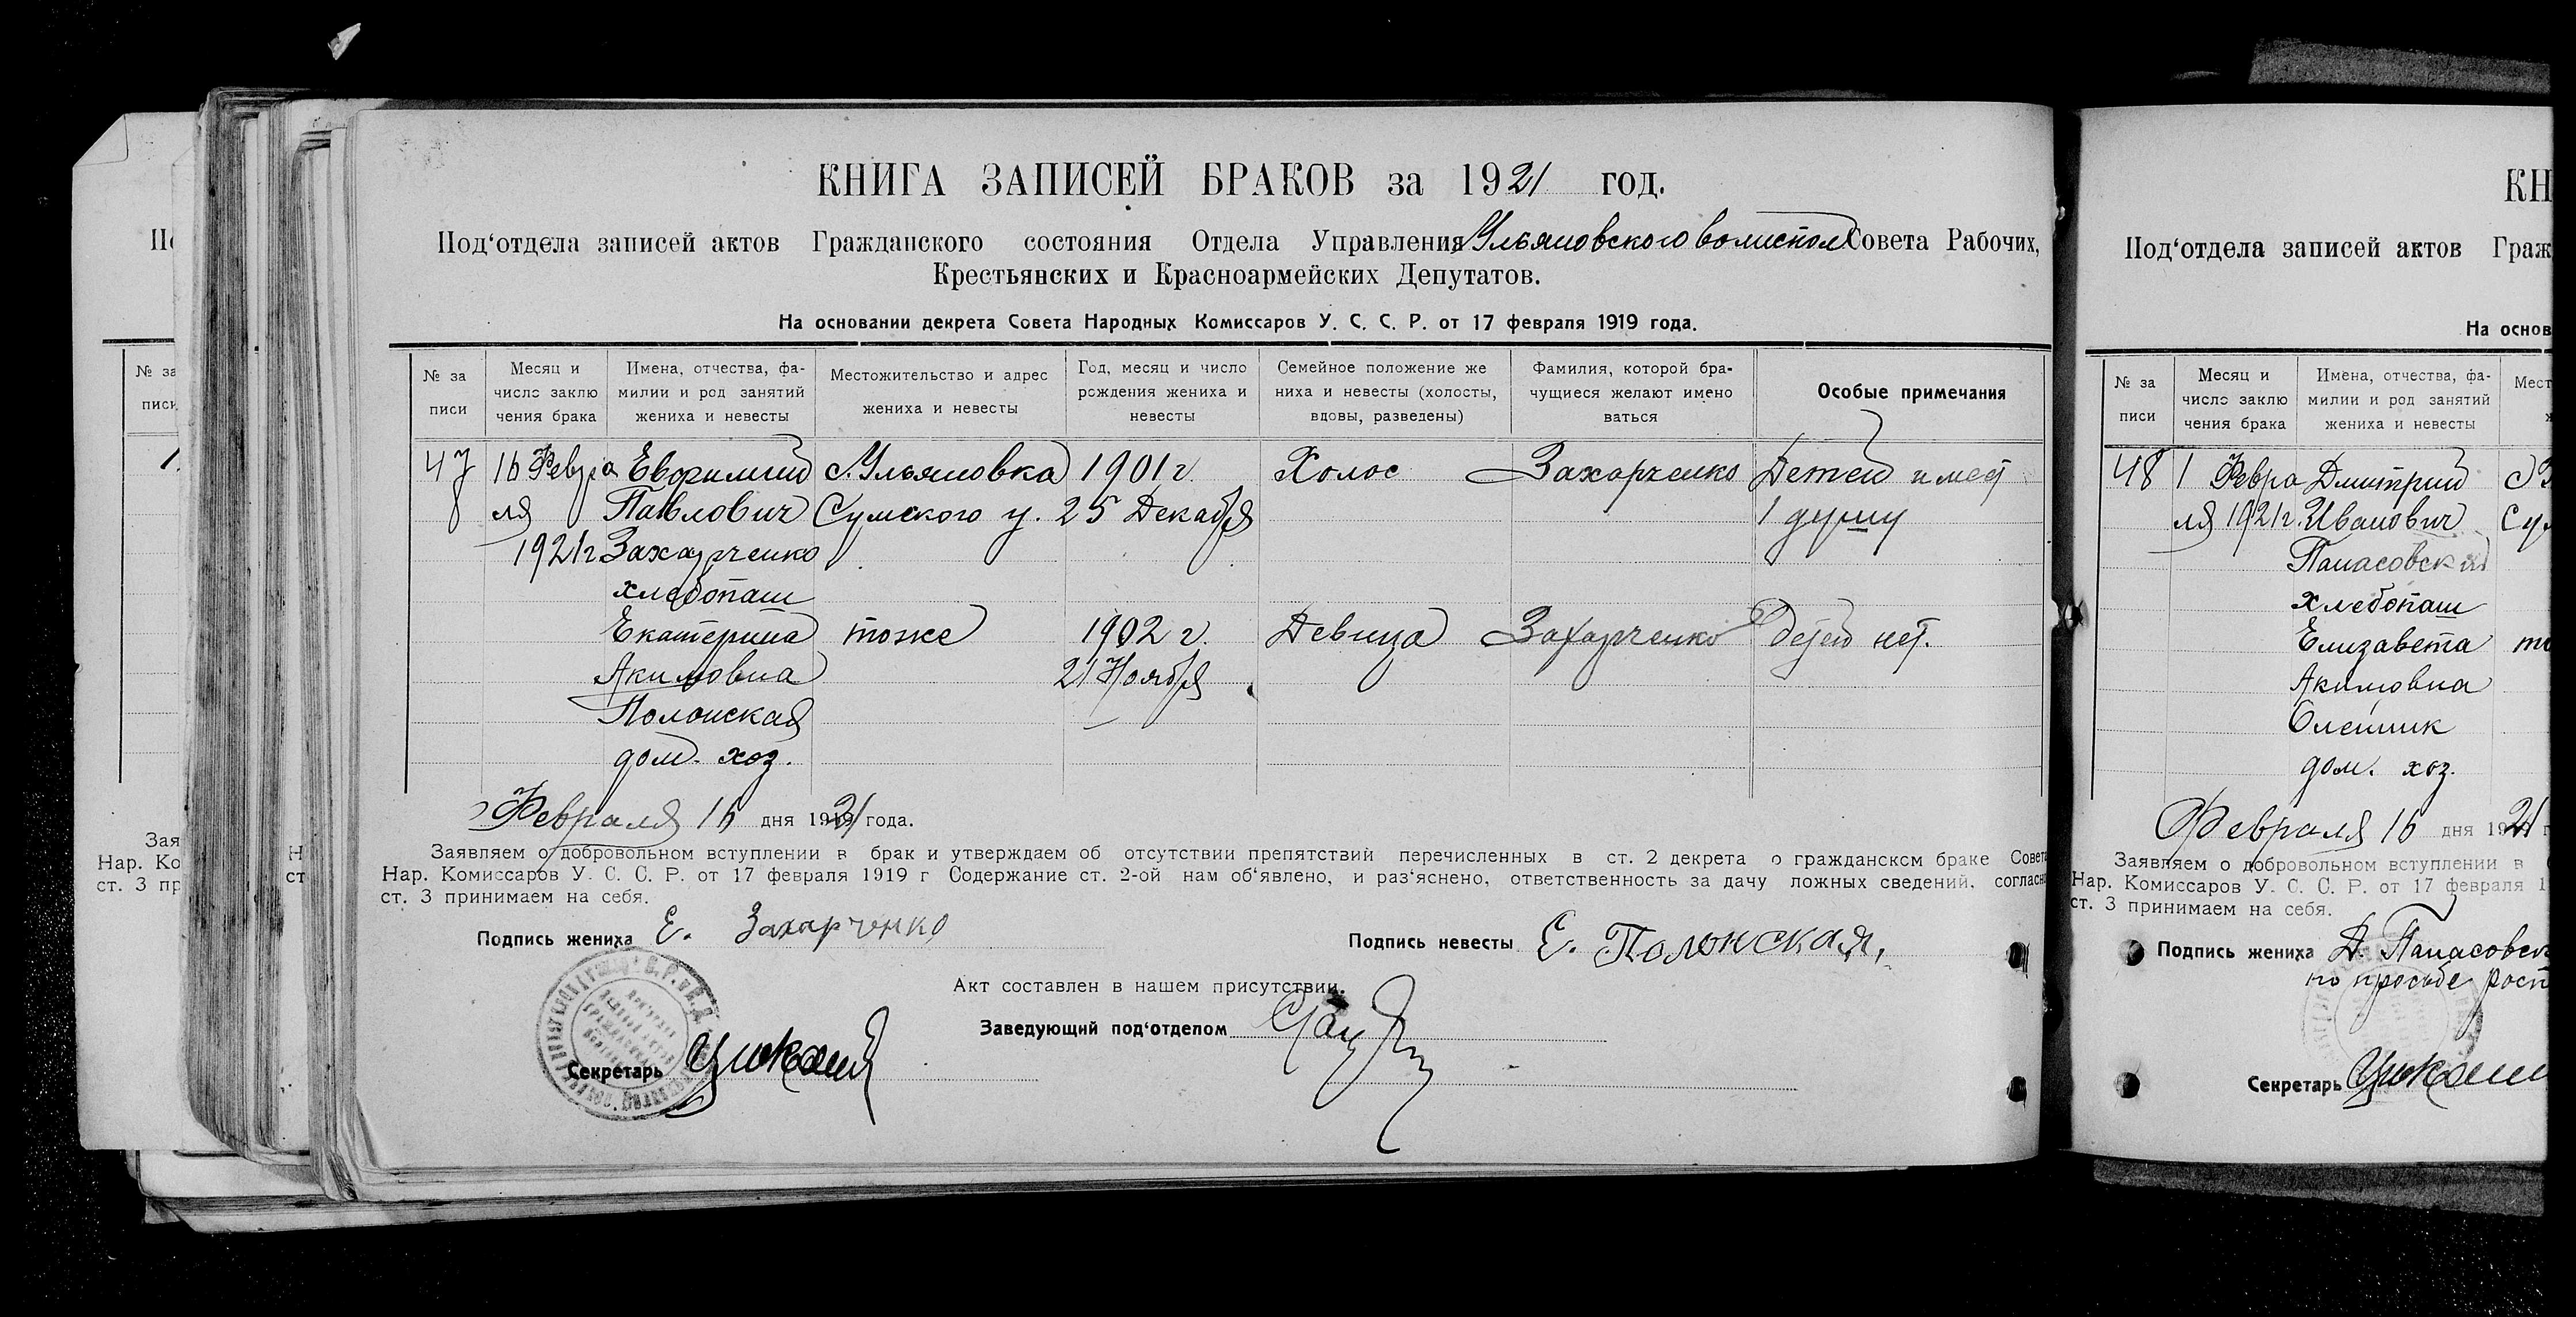 КНИГА ЗАПИСЕЙ БРАКОВ за 1921 год.
Под‘отдела записей актов Гражданского состояния Отдела Управления Ульяновского волиспол Совета Рабочих,
Крестьянских и Красноармейских Депутатов.
На основании декрета Совета Народных Комиссаров У. С. С. Р. от 17 февраля 1919 года.
№ за
писи
Месяц и
число заклю
чения брака
Имена, отчества, фа-
милии и род занятий
жениха и невесты
Местожительство и адрес
жениха и невесты
Год, месяц и число
рождения жениха и
невесты
Семейное положение же
ниха и невесты (холосты,
вдовы, разведены)
Фамилия, которой бра-
чущиеся желают имено
ваться
Особые примечания
47
16 Февра
ля
1921 г
Евфимий
Павлович
Захарченко
хлебопаш
с. Ульяновка
Сумского у.
1901 г.
25 Декабря
Холос
Захарченко
Детей имеет
1 душу
Екатерина
Акимовна
Полонская
дом. хоз.
тоже
1902 г.
21 Ноября
Девица
Захарченко
Детей нет.
Февраля 16 дня 1921 года.
Заявляем о добровольном вступлении в брак и утверждаем об отсутствии препятствий перечисленных в ст. 2 декрета о гражданском браке Совета
Нар. Комиссаров У. С. С. Р. от 17 февраля 1919 г Содержание ст. 2-ой нам об‘явлено, и раз‘яснено, ответственность за дачу ложных сведений, согласно
ст. 3 принимаем на себя.
Подпись жениха Е. Захарченко
Подпись невесты Е. Полонская,
Акт составлен в нашем присутствии.
Заведующий под‘отделом
Секретарь
КН
Под‘отдела записей актов Граж
На основ
№ за
писи
Месяц и
число заклю
чения брака
Имена, отчества, фа-
милии и род занятий
жениха и невесты
Мест
ж
48
1 Февра
ля 1921 г.
Дмитрий
Иванович
Панасовский
хлебопаш
Елизавета
Акимовна
Олейник
дом. хоз.
Февраля 16 дня 1921 г
Заявляем о добровольном вступлении в
Нар. Комиссаров У. С. С. Р. от 17 февраля 1
ст. 3 принимаем на себя.
Подпись жениха Д. Панасовск
по просьбе росп
Секретарь
№ за
писи
Зая
Нар. Ко
ст. 3 пр
Н
ст